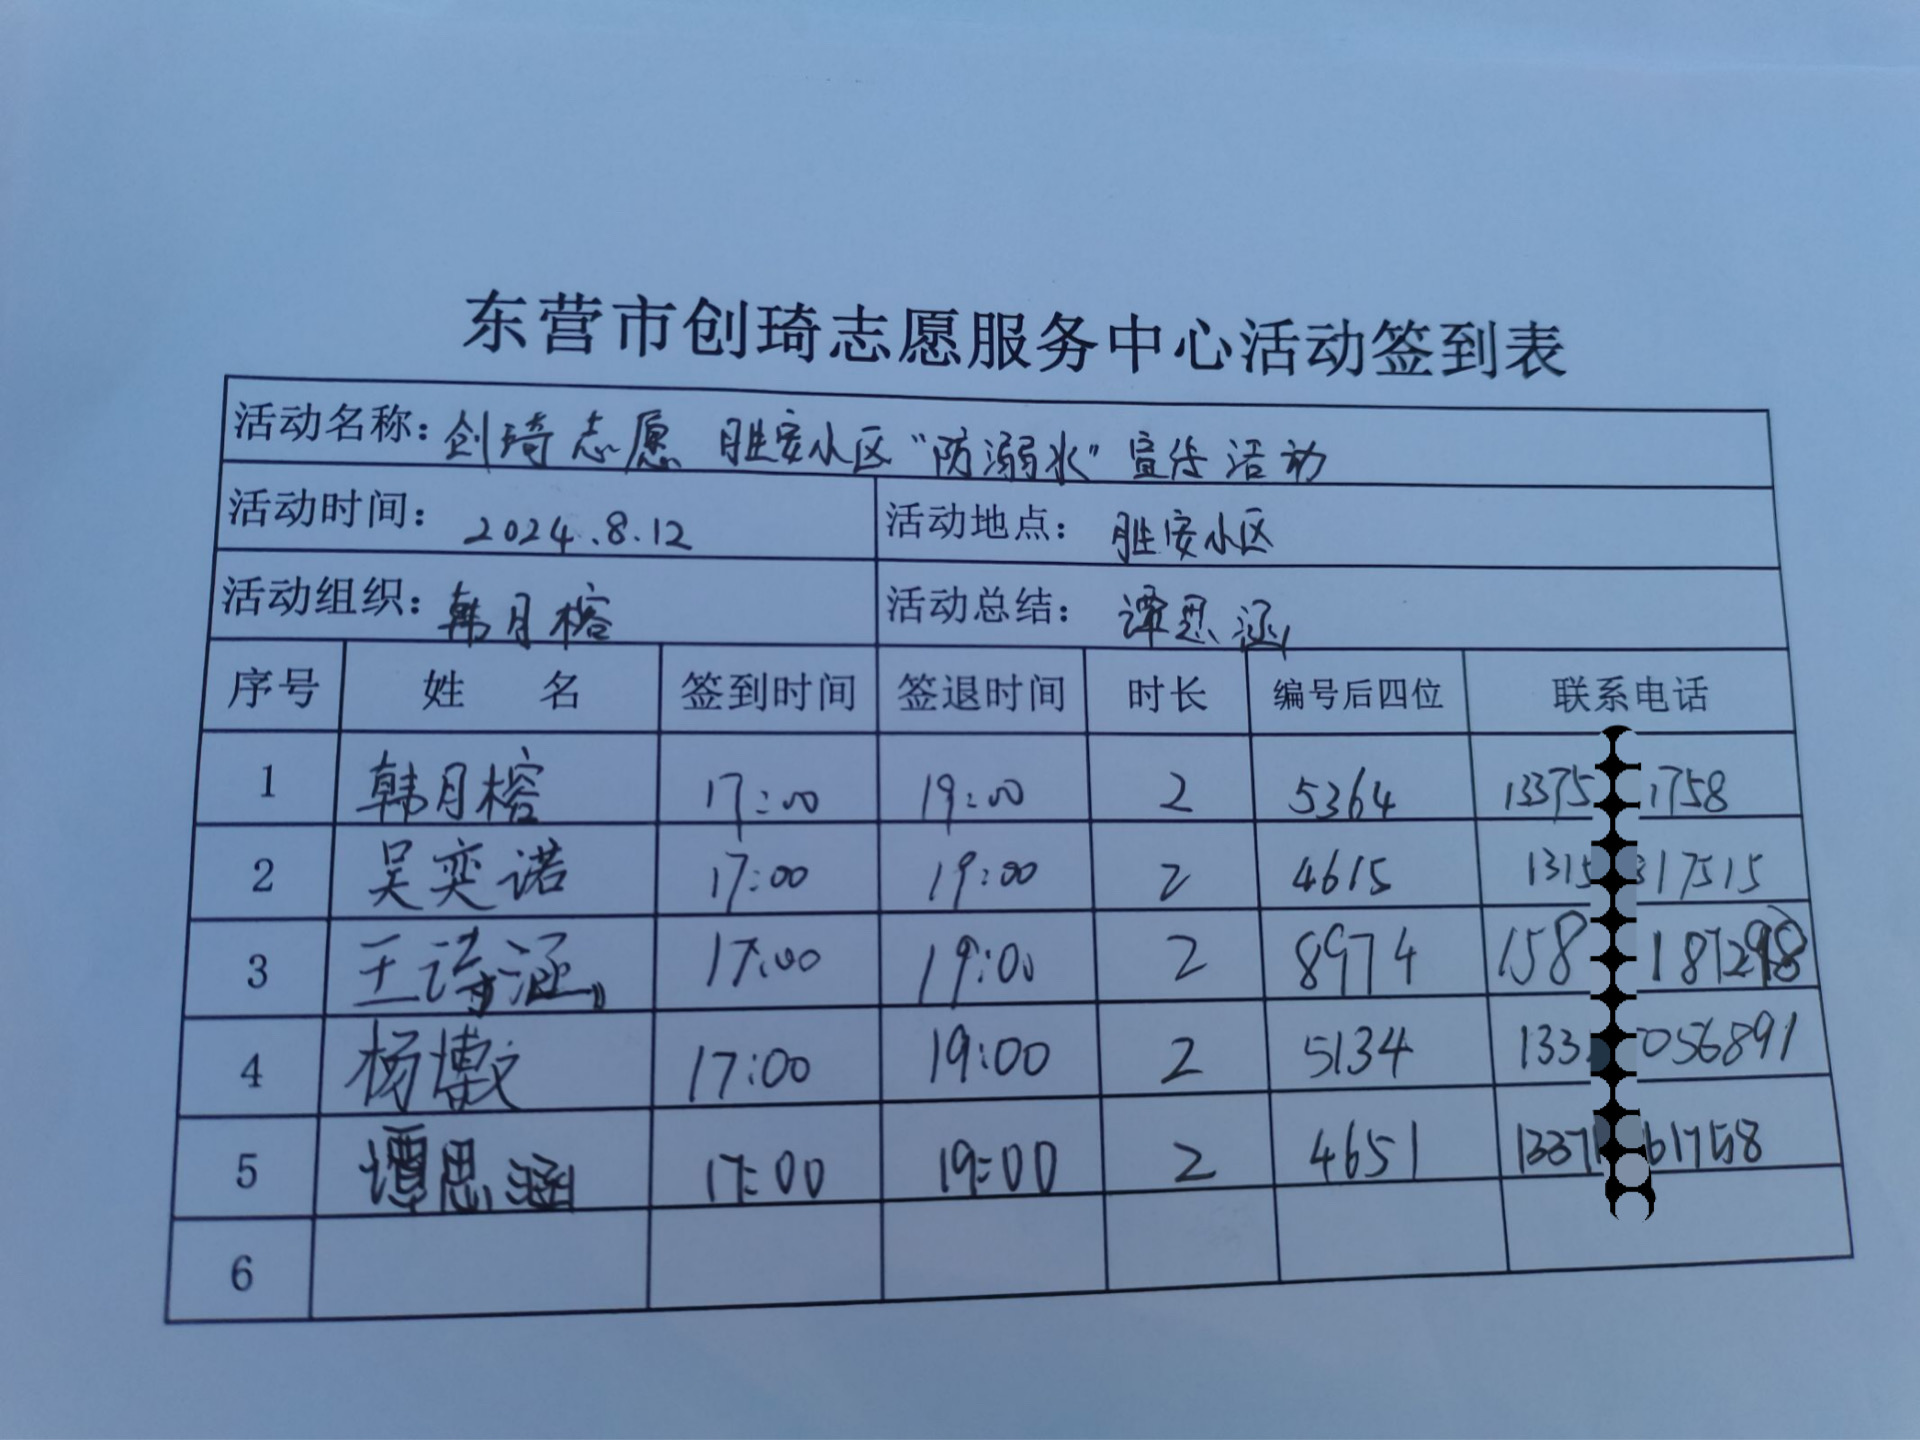 东营市创琦志愿服务中心活动签到表
活动名称：创琦志愿 胜安小区“防溺水”宣传活动
活动时间：2024.8.12 活动地点：胜安小区
活动组织：韩月榕 活动总结：谭思涵
序号 姓 名 签到时间 签退时间 时长 编号后四位 联系电话
1 韩月榕 17:00 19:00 2 5364 13375 1758
2 吴奕诺 17:00 19:00 2 4615 1315 317515
3 王诗涵 17:00 19:00 2 8974 158
4 杨博文 17:00 19:00 2 5134 133 056891
5 谭思涵 17:00 19:00 2 4651 1337 61758
6